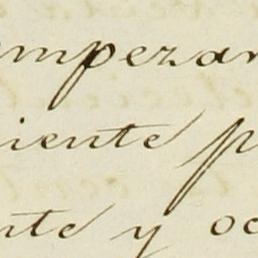 emperan
iente p
nte y oc